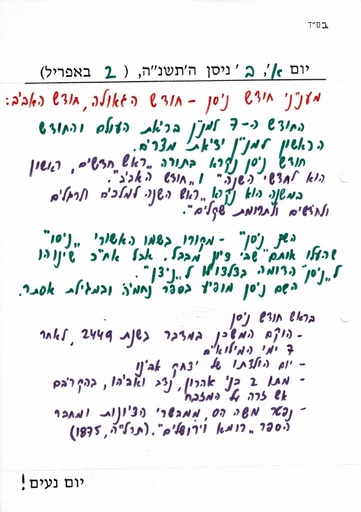 בס״ד
יום א׳, ב׳ ניסן ה׳תשנ״ה, ( 2 באפריל)
מעניני חודש ניסן - חודש הגאולה, חודש האביב:
החודש ה-7 למנין בריאת העולם והחודש
הראשון למנין יציאת מצרים.
חודש ניסן נקרא בתורה "ראש חדשים, ראשון
הוא לחדשי השנה" ו"חודש האביב".
במשנה הוא נקרא "ראש השנה למלכים ולרגלים
ולחדשים ותרומת שקלים".
השם ניסן" - מקורו בשמו האשורי "ניסו"
שהעלו אותם שבי ציון מבבל. אבל אח״כ שינוהו
ל"ניסן" הדומה בצלצולו ל"ניצן".
השם ניסן מופיע בספר נחמיה ובמגילת אסתר.
בראש חודש ניסן
- הוקם המשכן במדבר בשנת 2449, לאחר
7 ימי המילואים
- יום הולדתו של יצחק אבינו
- מתו 2 בני אהרון, נדב ואביהו, בהקריבם
אש זרה על המזבח
- נפטר משה הס, ממבשרי הציונות ומחבר
הספר "רומא וירושלים". (תרל״ה, 1875)
יום נעים!